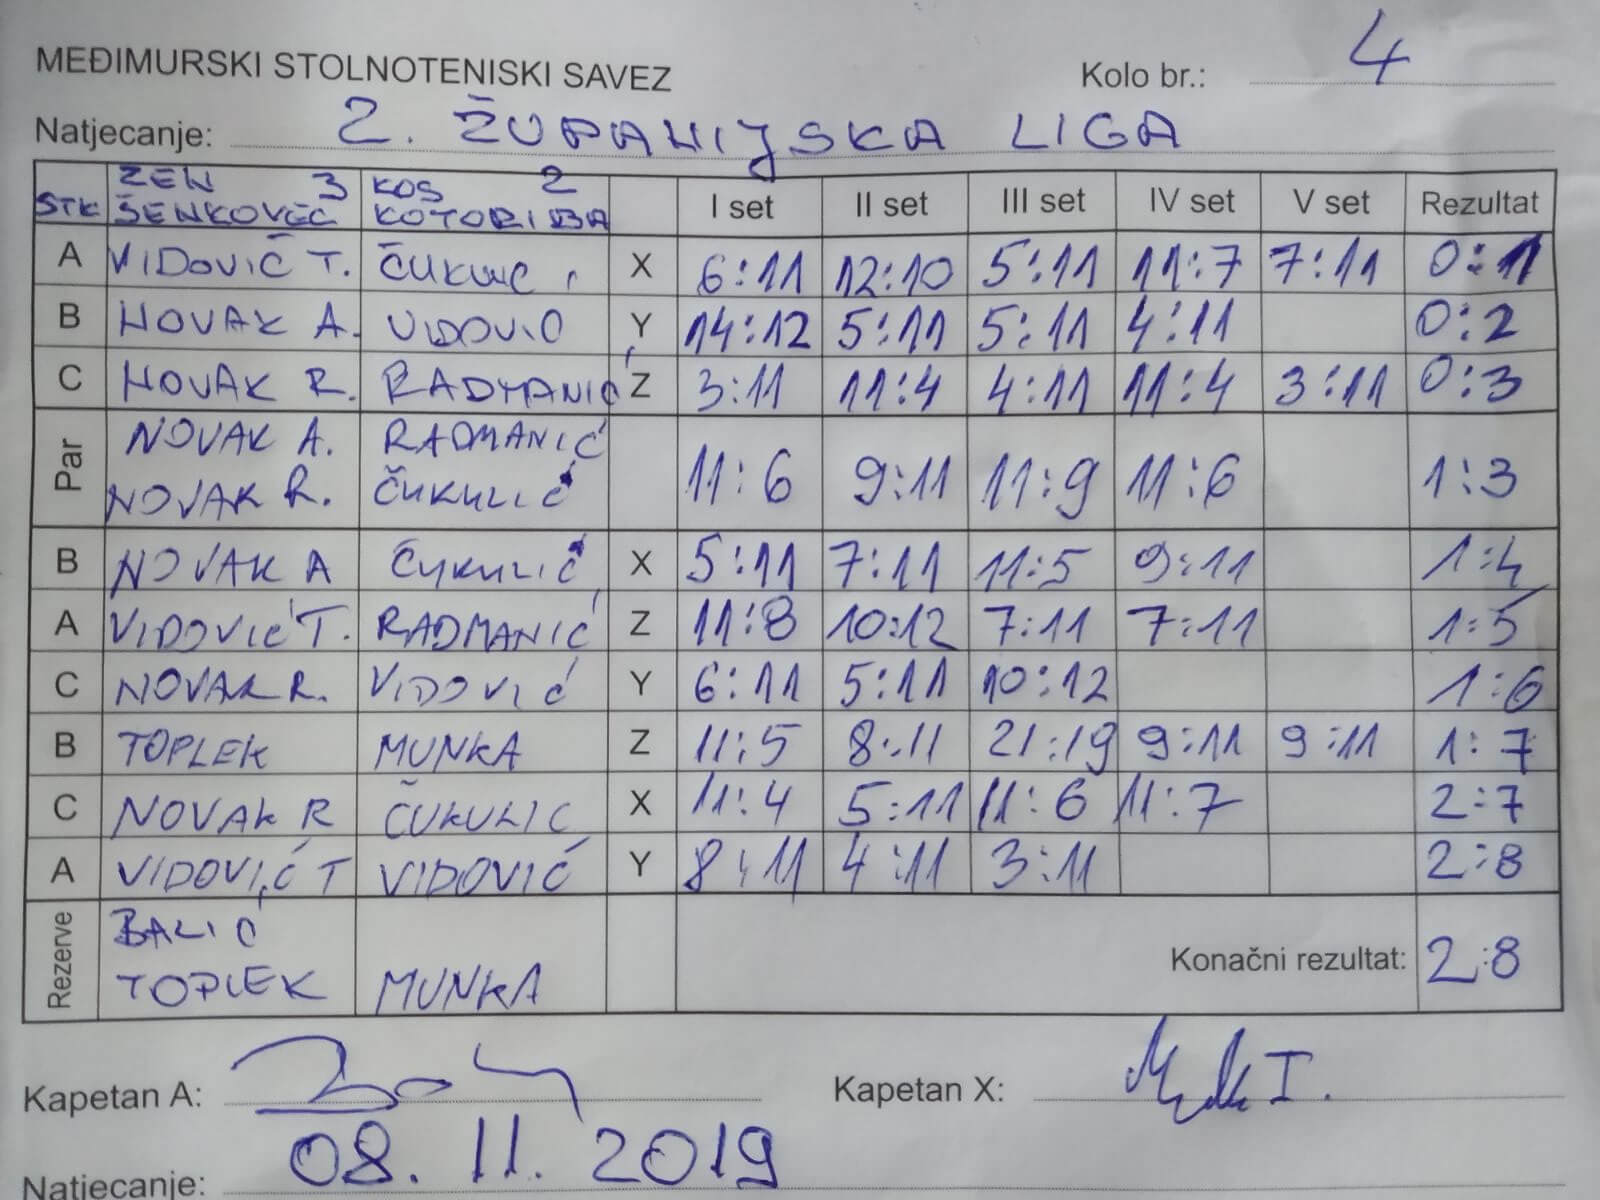 MEĐIMURSKI STOLNOTENISKI SAVEZ Kolo br.: 4
Natjecanje: 2. ŽUPANIJSKA LIGA
STK ZEN 3 ŠENKOVEC KOS 2 KOTORIBA I set II set III set IV set V set Rezultat
A VIDOVIĆ T. X 6:11 12:10 5:11 11:7 7:11 0:1
B NOVAK A. VIDOVIĆ Y 14:12 5:11 5:11 4:11 0:2
C NOVAK R. RADMANIĆ Z 3:11 11:4 4:11 11:4 3:11 0:3
Par NOVAK A. RADMANIĆ
NOVAK R. ČUKULIĆ 11:6 9:11 11:9 11:6 1:3
B NOVAK A ČUKULIĆ X 5:11 7:11 11:5 9:11 1:4
A VIDOVIĆ T. RADMANIĆ Z 11:8 10:12 7:11 7:11 1:5
C NOVAK R. VIDOVIĆ Y 6:11 5:11 10:12 1:6
B TOPLEK MUNKA Z 11:5 8:11 21:19 9:11 9:11 1:7
C NOVAK R ČUKULIĆ X 11:4 5:11 11:6 11:7 2:7
A VIDOVIĆ T VIDOVIĆ Y 8:11 4:11 3:11 2:8
Rezerve BALIĆ
TOPLEK MUNKA Konačni rezultat: 2:8
Kapetan A: Kapetan X:
Natjecanje: 08. 11. 2019